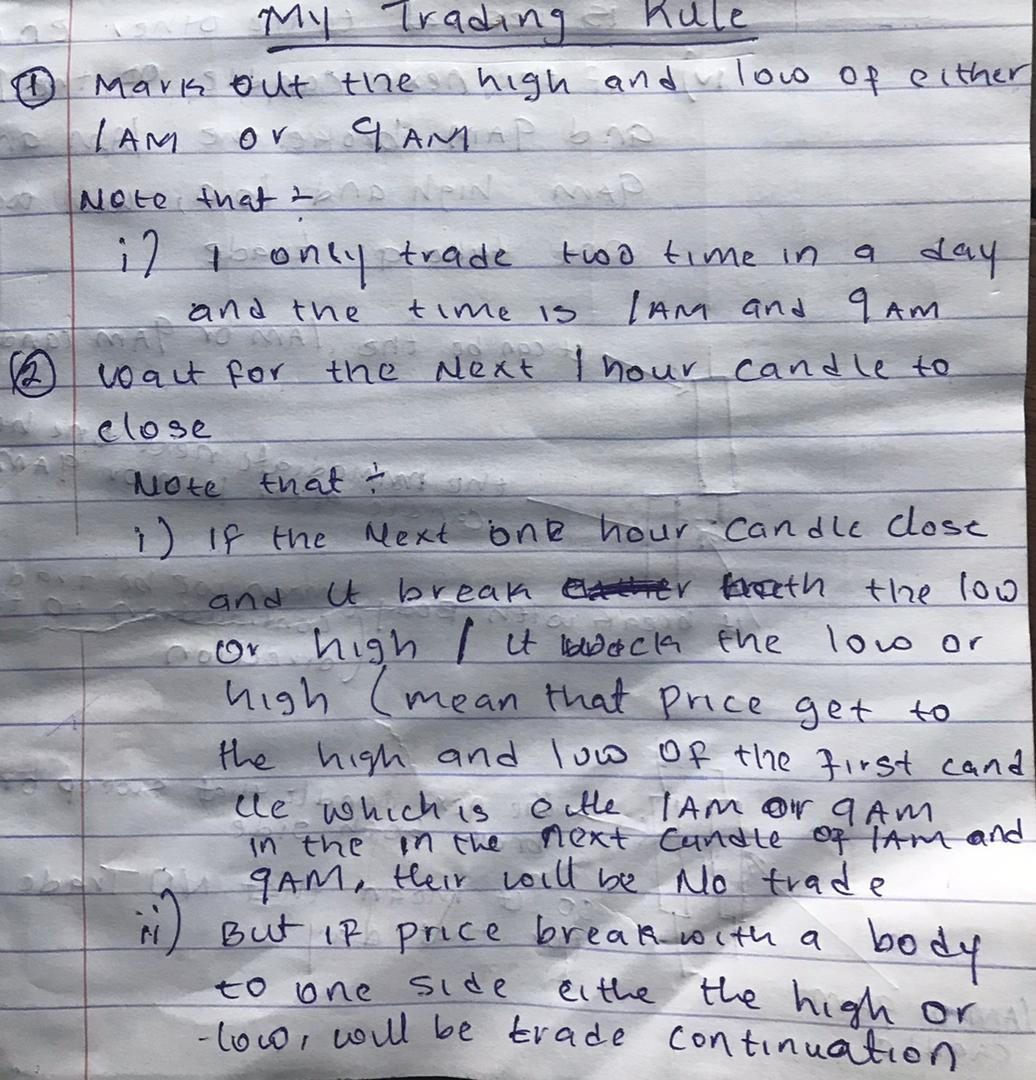 My Trading Rule
① Mark out the high and low of either
1AM or 9AM
Note that :-
i) I only trade two time in a day
and the time is 1AM and 9AM
② wait for the Next 1 hour candle to
close
Note that ÷
i) If the Next one hour candle close
and it break the low
or high / it the low or
high (mean that price get to
the high and low of the first cand
le which is eithe 1AM or 9AM
in the in the next candle of 1AM and
9AM, their will be No trade
ii) But if price break with a body
to one side eithe the high or
-low, will be trade continuation